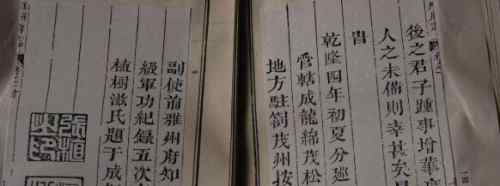 後之君子踵事增華
人之未備則幸甚矣
旹
乾隆四年初夏分廵
管轄成龍綿茂松
地方駐劄茂州按
副使前雅州府知
級軍功紀錄五次
植樹滋氏題于成
張植之印